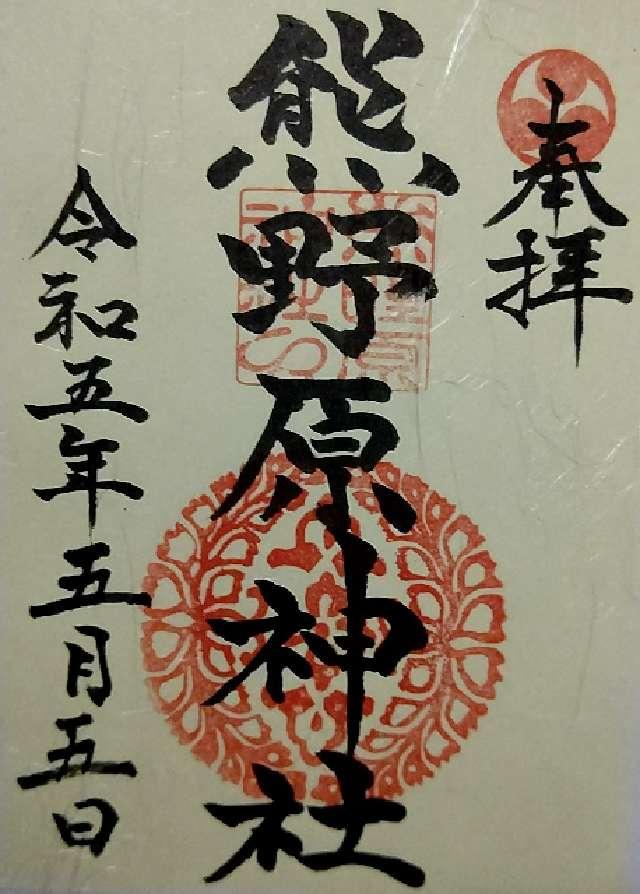 奉拝
熊野原神社
令和五年五月五日